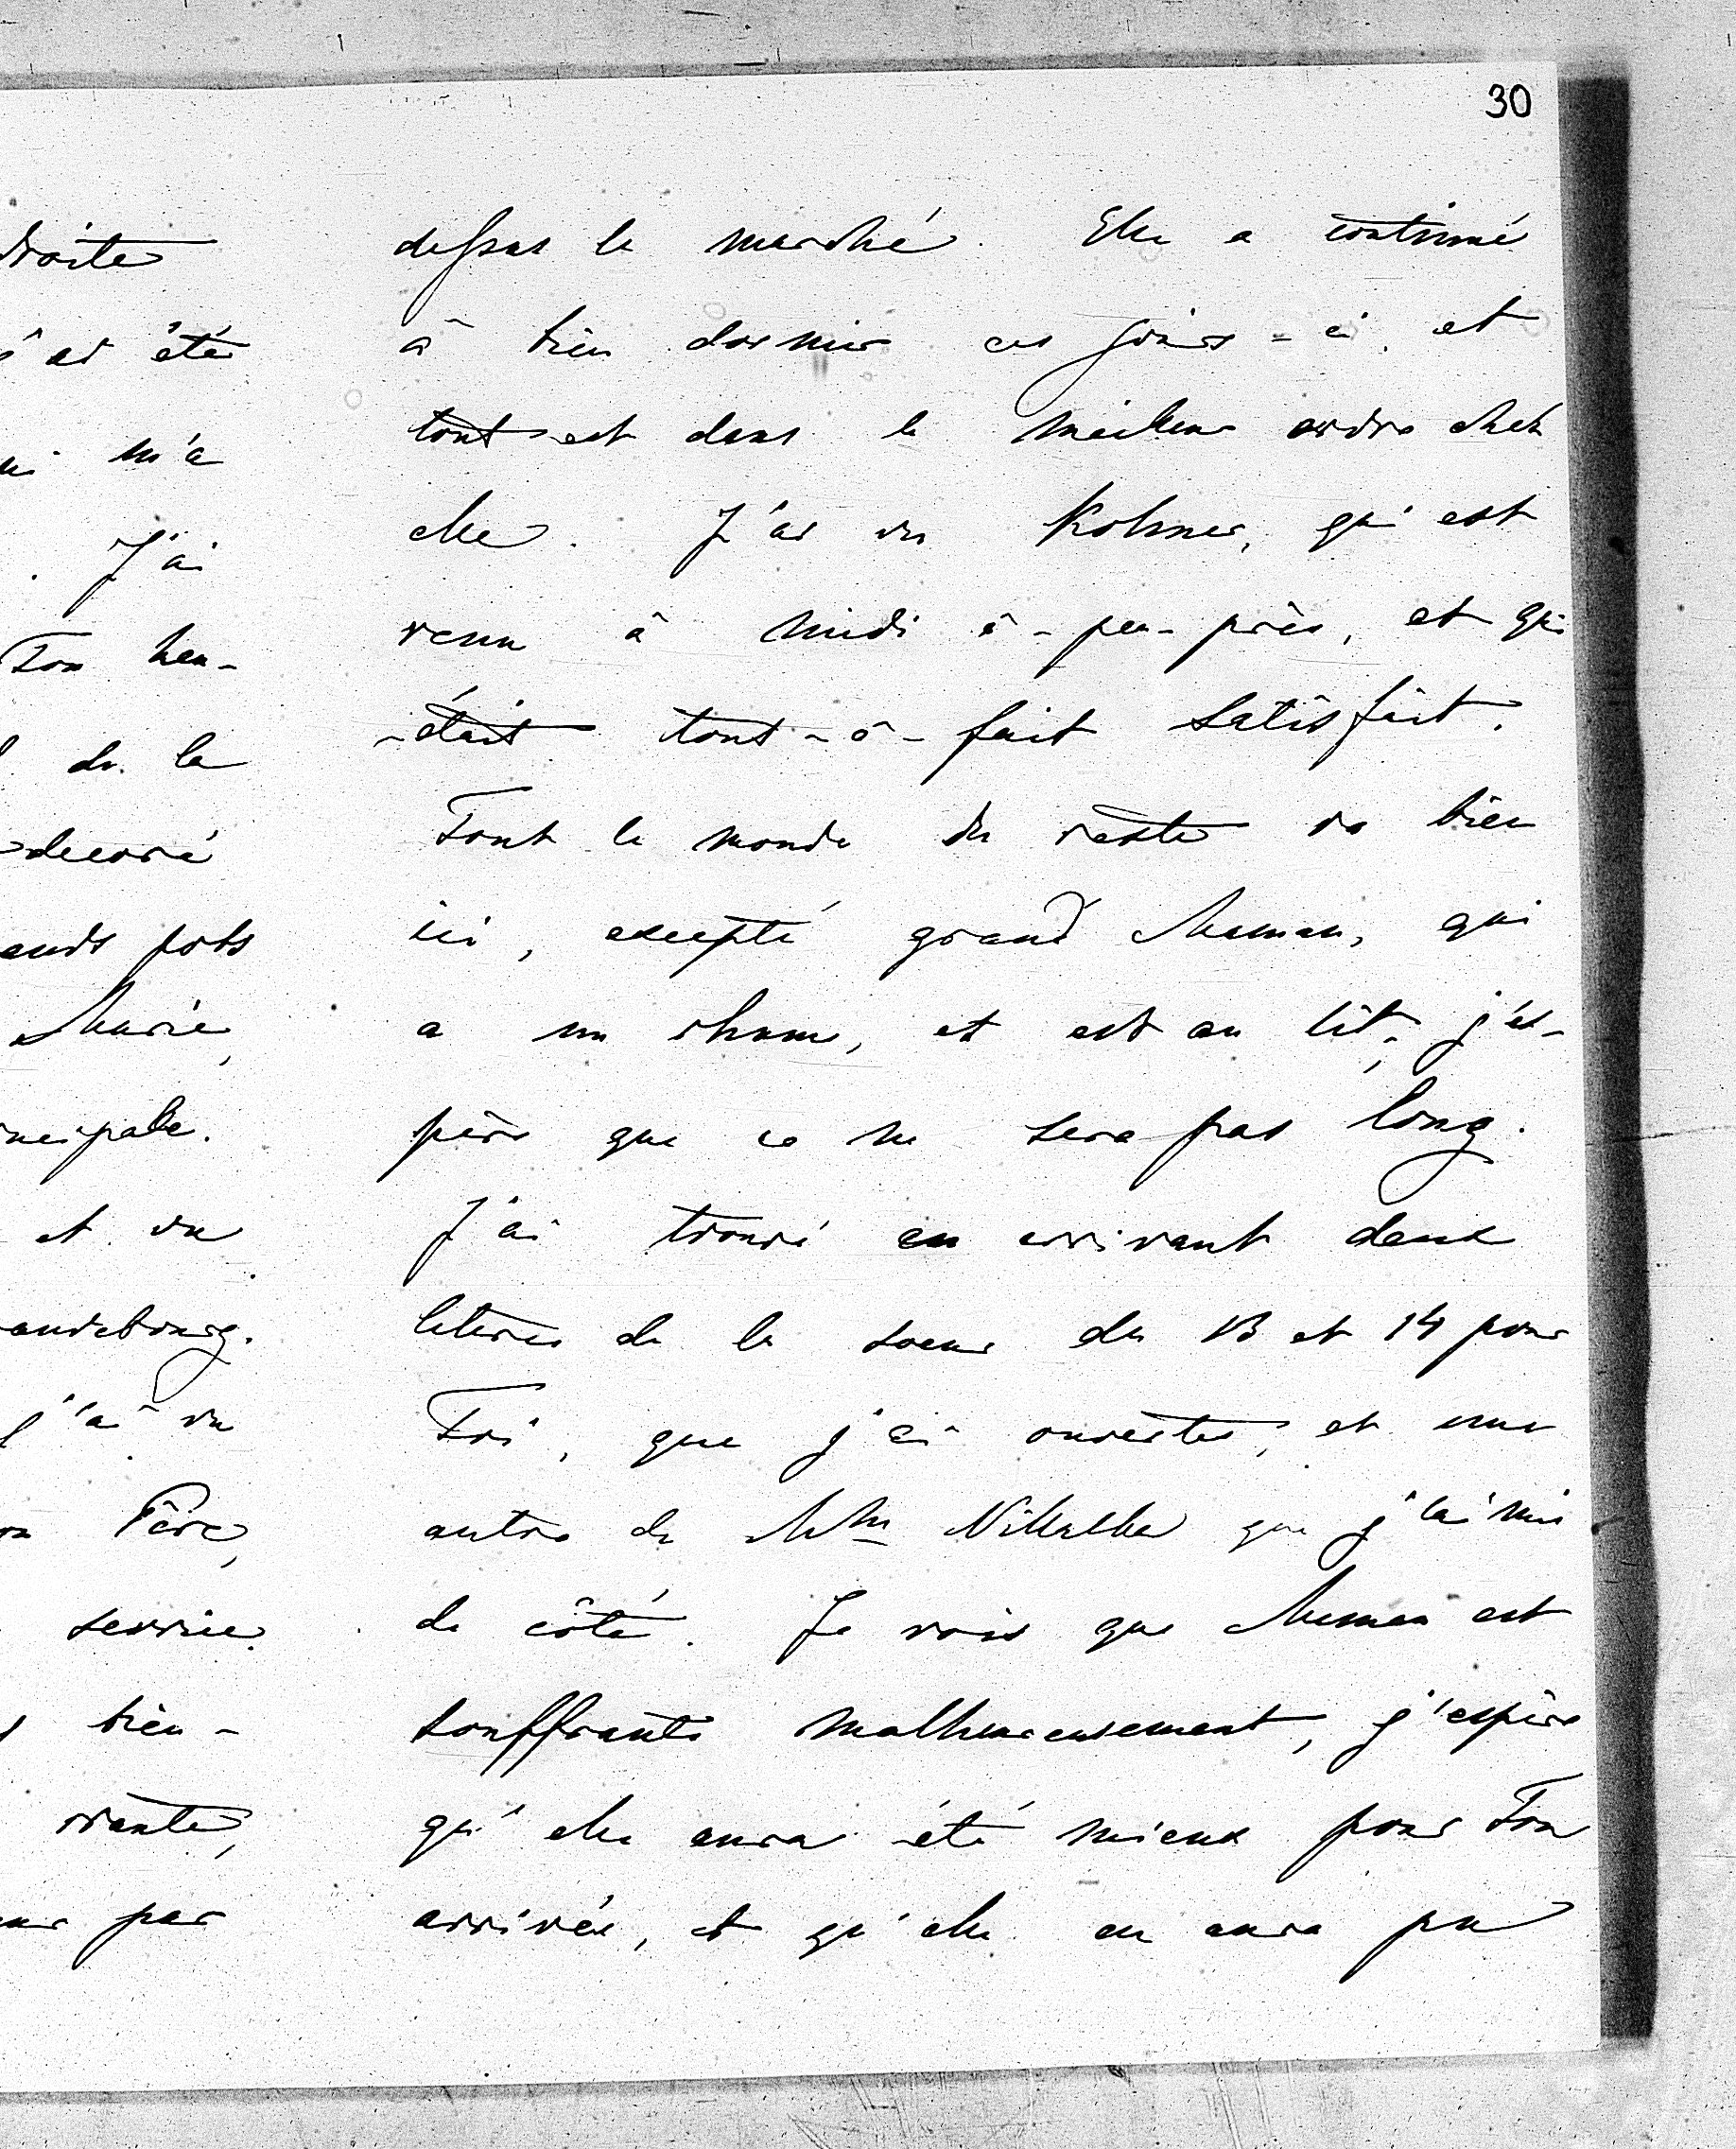 30
droite
été
m'a
J'ai
Ton heu-
de la
decoré
pots
Marie,
et vu
j'ai vu
Père,
service.
bien-
par
dessus le marché. Elle a continué
à bien dormir ces jours-ci, et
tout est dans le meilleur ordre chez
elle. J'ai vu Kolmer, qui est
venu à midi à-peu-près, et qui
était tout-à-fait satisfait.
Tout le monde du reste va bien
ici, excepté grand Maman, qui
a un rhume, et est au lit, j'es-
père que ce ne sera pas long.
J'ai trouvé en arrivant deux
lettres de la soeur du 13 et 14 pour
Toi, que j'ai ouvertes, et une
autre de Mme que j'ai mis
de côté. Je vois que Maman est
souffrante malheureusement, j'espère
qu'elle aura été mieux pour Ton
arrivée, et qu'elle en aura pu